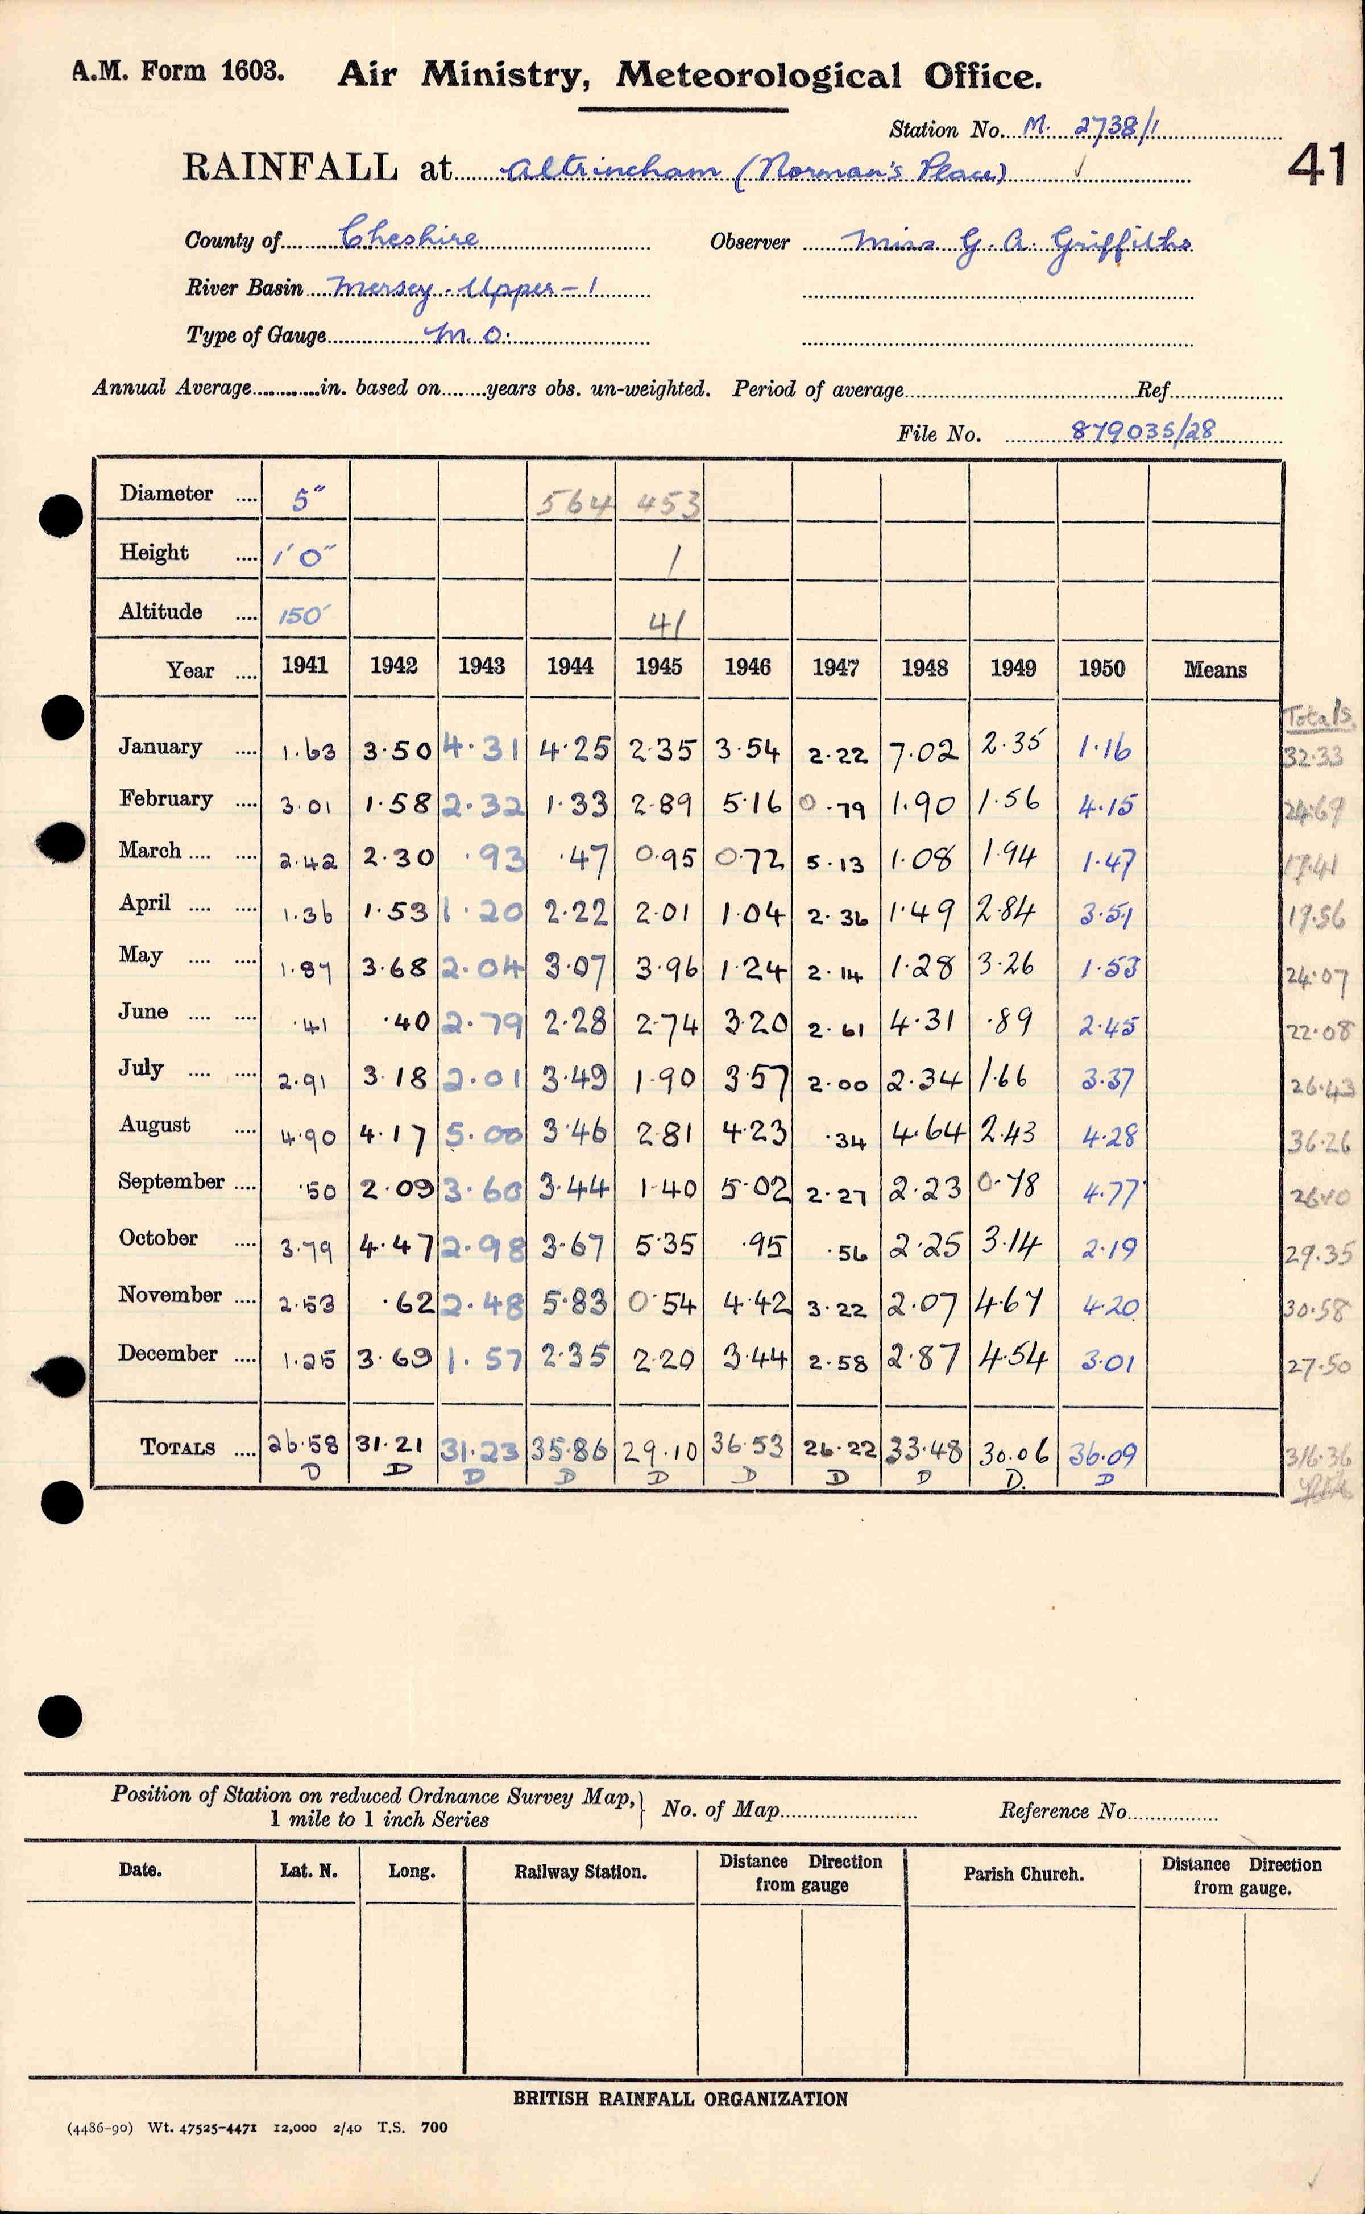 A.M. Form 1603. Air Ministry, Meteorological Office.
Station No. M. 2738/1
RAINFALL at Altrincham (Norman's Place) ✓
41
County of Cheshire Observer Miss G. A. Griffiths
River Basin Mersey - Upper - 1
Type of Gauge M.O.
Annual Average............in. based on........years obs. un-weighted. Period of average........ Ref........
File No. 879035/28
Diameter .... 5" 564 453
Height .... 1' 0" 1
Altitude .... 150' 41
Year .... 1941 1942 1943 1944 1945 1946 1947 1948 1949 1950 Means
Totals
January .... 1.63 3.50 4.31 4.25 2.35 3.54 2.22 7.02 2.35 1.16 32.33
February .... 3.01 1.58 2.32 1.33 2.89 5.16 0.79 1.90 1.56 4.15 24.69
March .... .... 2.42 2.30 .93 .47 0.95 0.72 5.13 1.08 1.94 1.47 17.41
April .... .... 1.36 1.53 1.20 2.22 2.01 1.04 2.36 1.49 2.84 3.51 19.56
May .... .... 1.87 3.68 2.04 3.07 3.96 1.24 2.14 1.28 3.26 1.53 24.07
June .... .... .41 .40 2.79 2.28 2.74 3.20 2.61 4.31 .89 2.45 22.08
July .... .... 2.91 3.18 2.01 3.49 1.90 3.57 2.00 2.34 1.66 3.37 26.43
August .... 4.90 4.17 5.00 3.46 2.81 4.23 .34 4.64 2.43 4.28 36.26
September .... .50 2.09 3.60 3.44 1.40 5.02 2.27 2.23 0.78 4.77 26.10
October .... 3.79 4.47 2.98 3.67 5.35 .95 .56 2.25 3.14 2.19 29.35
November .... 2.53 .62 2.48 5.83 0.54 4.42 3.22 2.07 4.67 4.20 30.58
December .... 1.25 3.69 1.57 2.35 2.20 3.44 2.58 2.87 4.54 3.01 27.50
TOTALS .... 26.58 31.21 31.23 35.86 29.10 36.53 26.22 33.48 30.06 36.09 316.36
D D D D D D D D D. D
Position of Station on reduced Ordnance Survey Map, } No. of Map........ Reference No........
1 mile to 1 inch Series
Date. Lat. N. Long. Railway Station. Distance Direction from gauge Parish Church. Distance Direction from gauge.
BRITISH RAINFALL ORGANIZATION
(4486-90) Wt. 47525-4471 12,000 2/40 T.S. 700